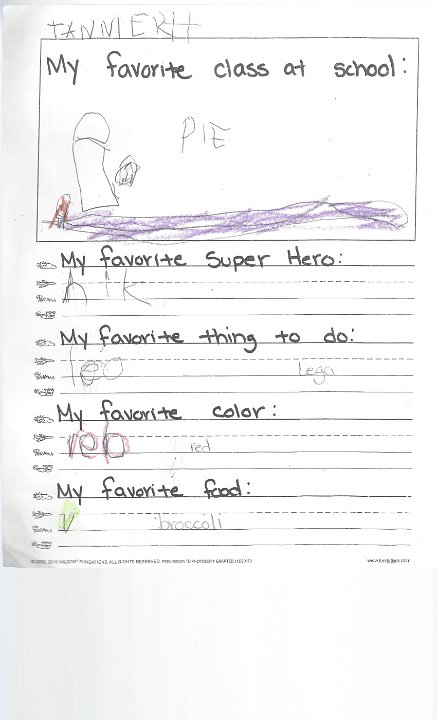 TANNER H
My favorite class at school:
PIE
My favorite Super Hero:
hlk
My favorite thing to do:
leo Lego
My favorite color:
reb red
My favorite food:
broccoli
© 2002, 2010 WILSON FUNDATIONS. ALL RIGHTS RESERVED. PERMISSION TO PHOTOCOPY GRANTED.